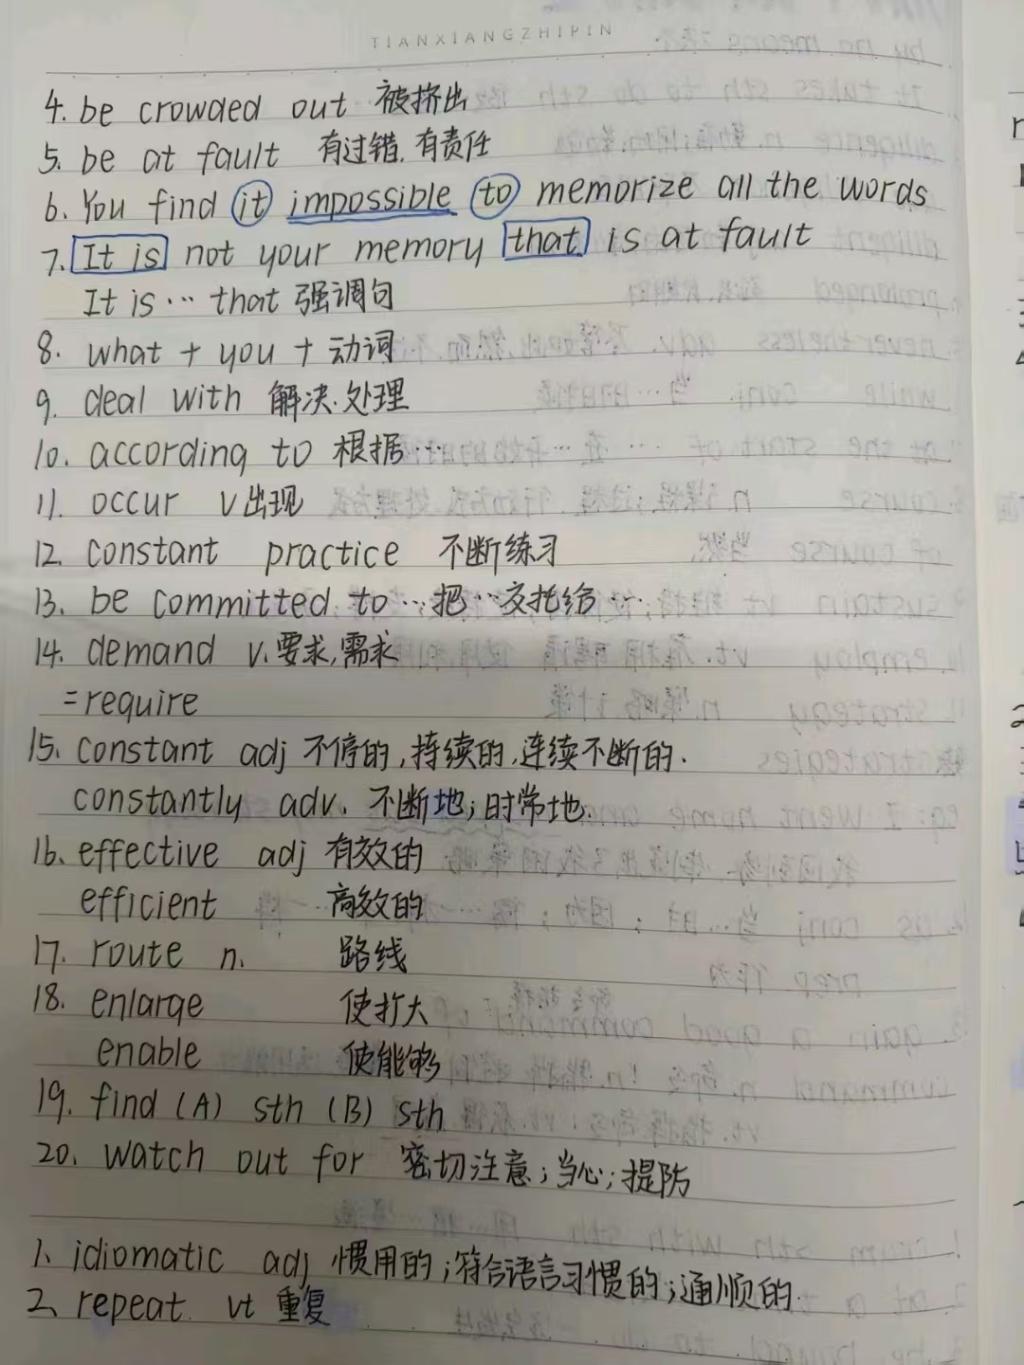 TIANXIANGZHIPIN
4. be crowded out 被挤出
5. be at fault 有过错.有责任
6. You find it impossible to memorize all the words
7. It is not your memory that is at fault
It is … that 强调句
8. what + you + 动词
9. deal with 解决.处理
10. according to 根据…
11. occur v出现
12. constant practice 不断练习
13. be committed to …把…交托给…
14. demand v.要求,需求
=require
15. constant adj 不停的,持续的,连续不断的.
constantly adv. 不断地;时常地.
16. effective adj 有效的
efficient 高效的
17. route n. 路线
18. enlarge 使打大
enable 使能够
19. find (A) sth (B) sth
20. watch out for 密切注意;当心;提防
1. idiomatic adj 惯用的;符合语言习惯的;通顺的.
2. repeat vt 重复